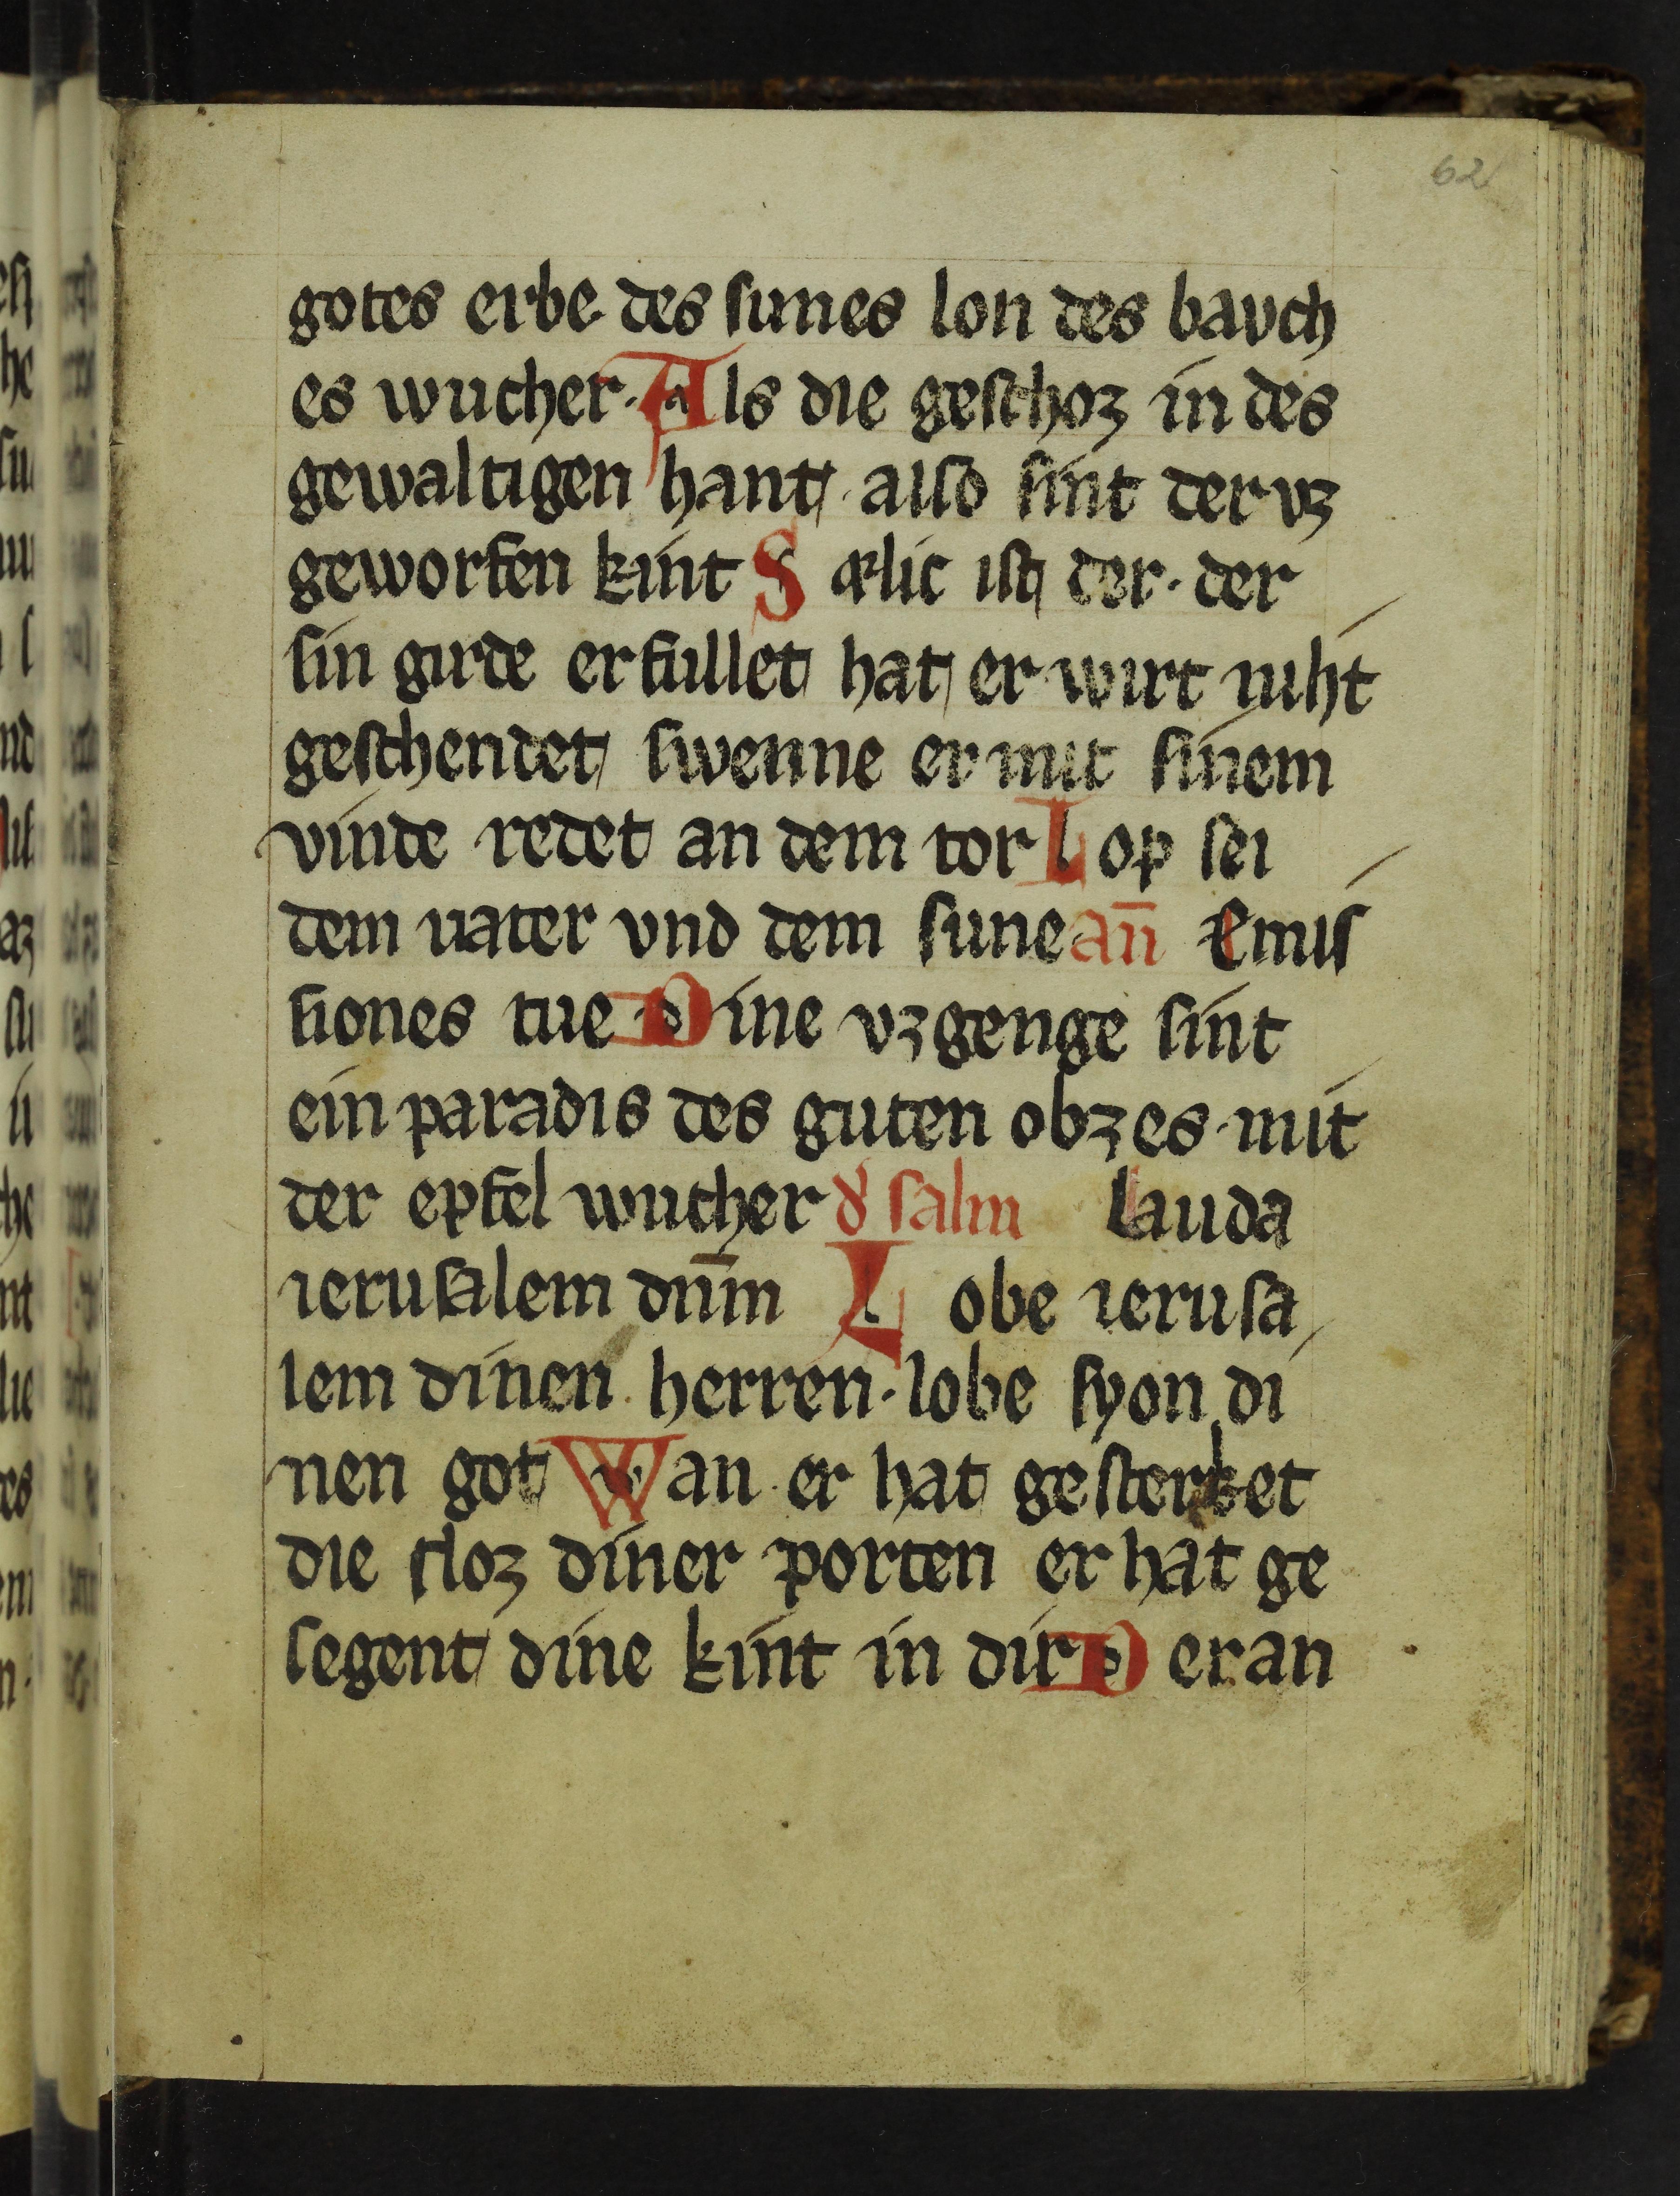 62
gotes erbe des sunes lon des bauch
es wucher. Als die geschoz in des
gewaltigen hant. also sint der vz
geworfen kint Sælic ist der. der
sin girde erfullet hat er wirt niht
geschendet swenne er mit sinem
vinde redet an dem tor Lop sei
dem uater vnd dem sune an̄ Emis
siones tue Dine vzgenge sint
ein paradis des guten obzes mit
der epfel wucher d͛ salm Lauda
ierusalem dn̄m Lobe ierusa
lem dinen herren. lobe syon di
nen got Wan er hat gesterket
die sloz diner porten er hat ge
segent dine kint in dir Der an